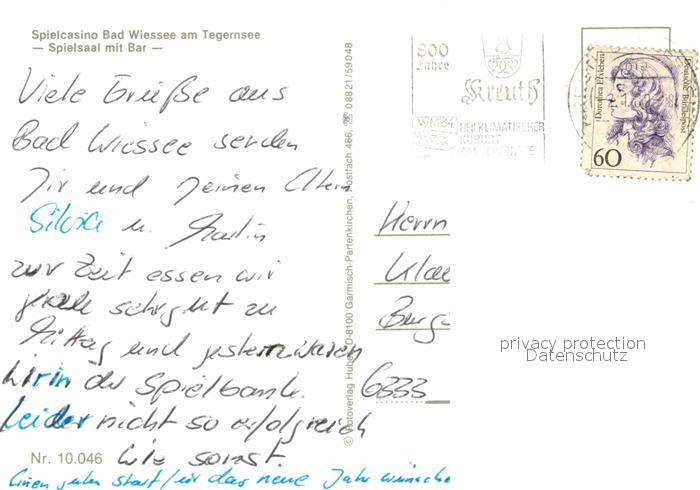 Spielcasino Bad Wiessee am Tegernsee
— Spielsaal mit Bar —
Viele Grüße aus
Bad Wiessee senden
Dir und Deinen Eltern
Silvia u. Martin
zur Zeit essen wir
sehr gut zu
Mittag und gestern waren
wir in der Spielbank.
Leider nicht so erfolgreich
wie sonst
einen guten start für das neue Jahr wünsche
Nr. 10.046
© Fotoverlag Huber, D-8100 Garmisch-Partenkirchen, Postfach 466, ☏ 08821/59048
800
Jahre
Kreuth
WM'84
HEILKLIMATISCHER
KURORT
Dorothea Erxleben
Deutsche Bundespost
60
Herrn
Klau
6333
privacy protection
Datenschutz